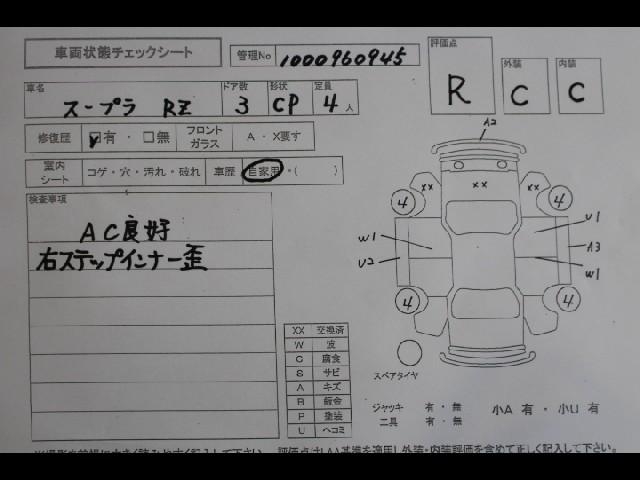 車両状態チェックシート
管理No 1000960945
評価点 R
外装 C
内装 C
車名 スープラ RZ
ドア数 3
形状 CP
定員 4人
修復歴 ☑有・☐無
フロントガラス A・X要す
室内シート コゲ・穴・汚れ・破れ
車歴 自家用・( )
検査事項
AC良好
右ステップインナー歪
A2
XX XX XX
4 4
W1 U1
U2 A3
W1
4 4
スペアタイヤ
XX 交換済
W 波
C 腐食
S サビ
A キズ
R 鈑金
P 塗装
U ヘコミ
ジャッキ 有・無
工具 有・無
小A 有・小U 有
評価点はJAAI基準を適用し外装・内装評価を含めて正しく記入して下さい。